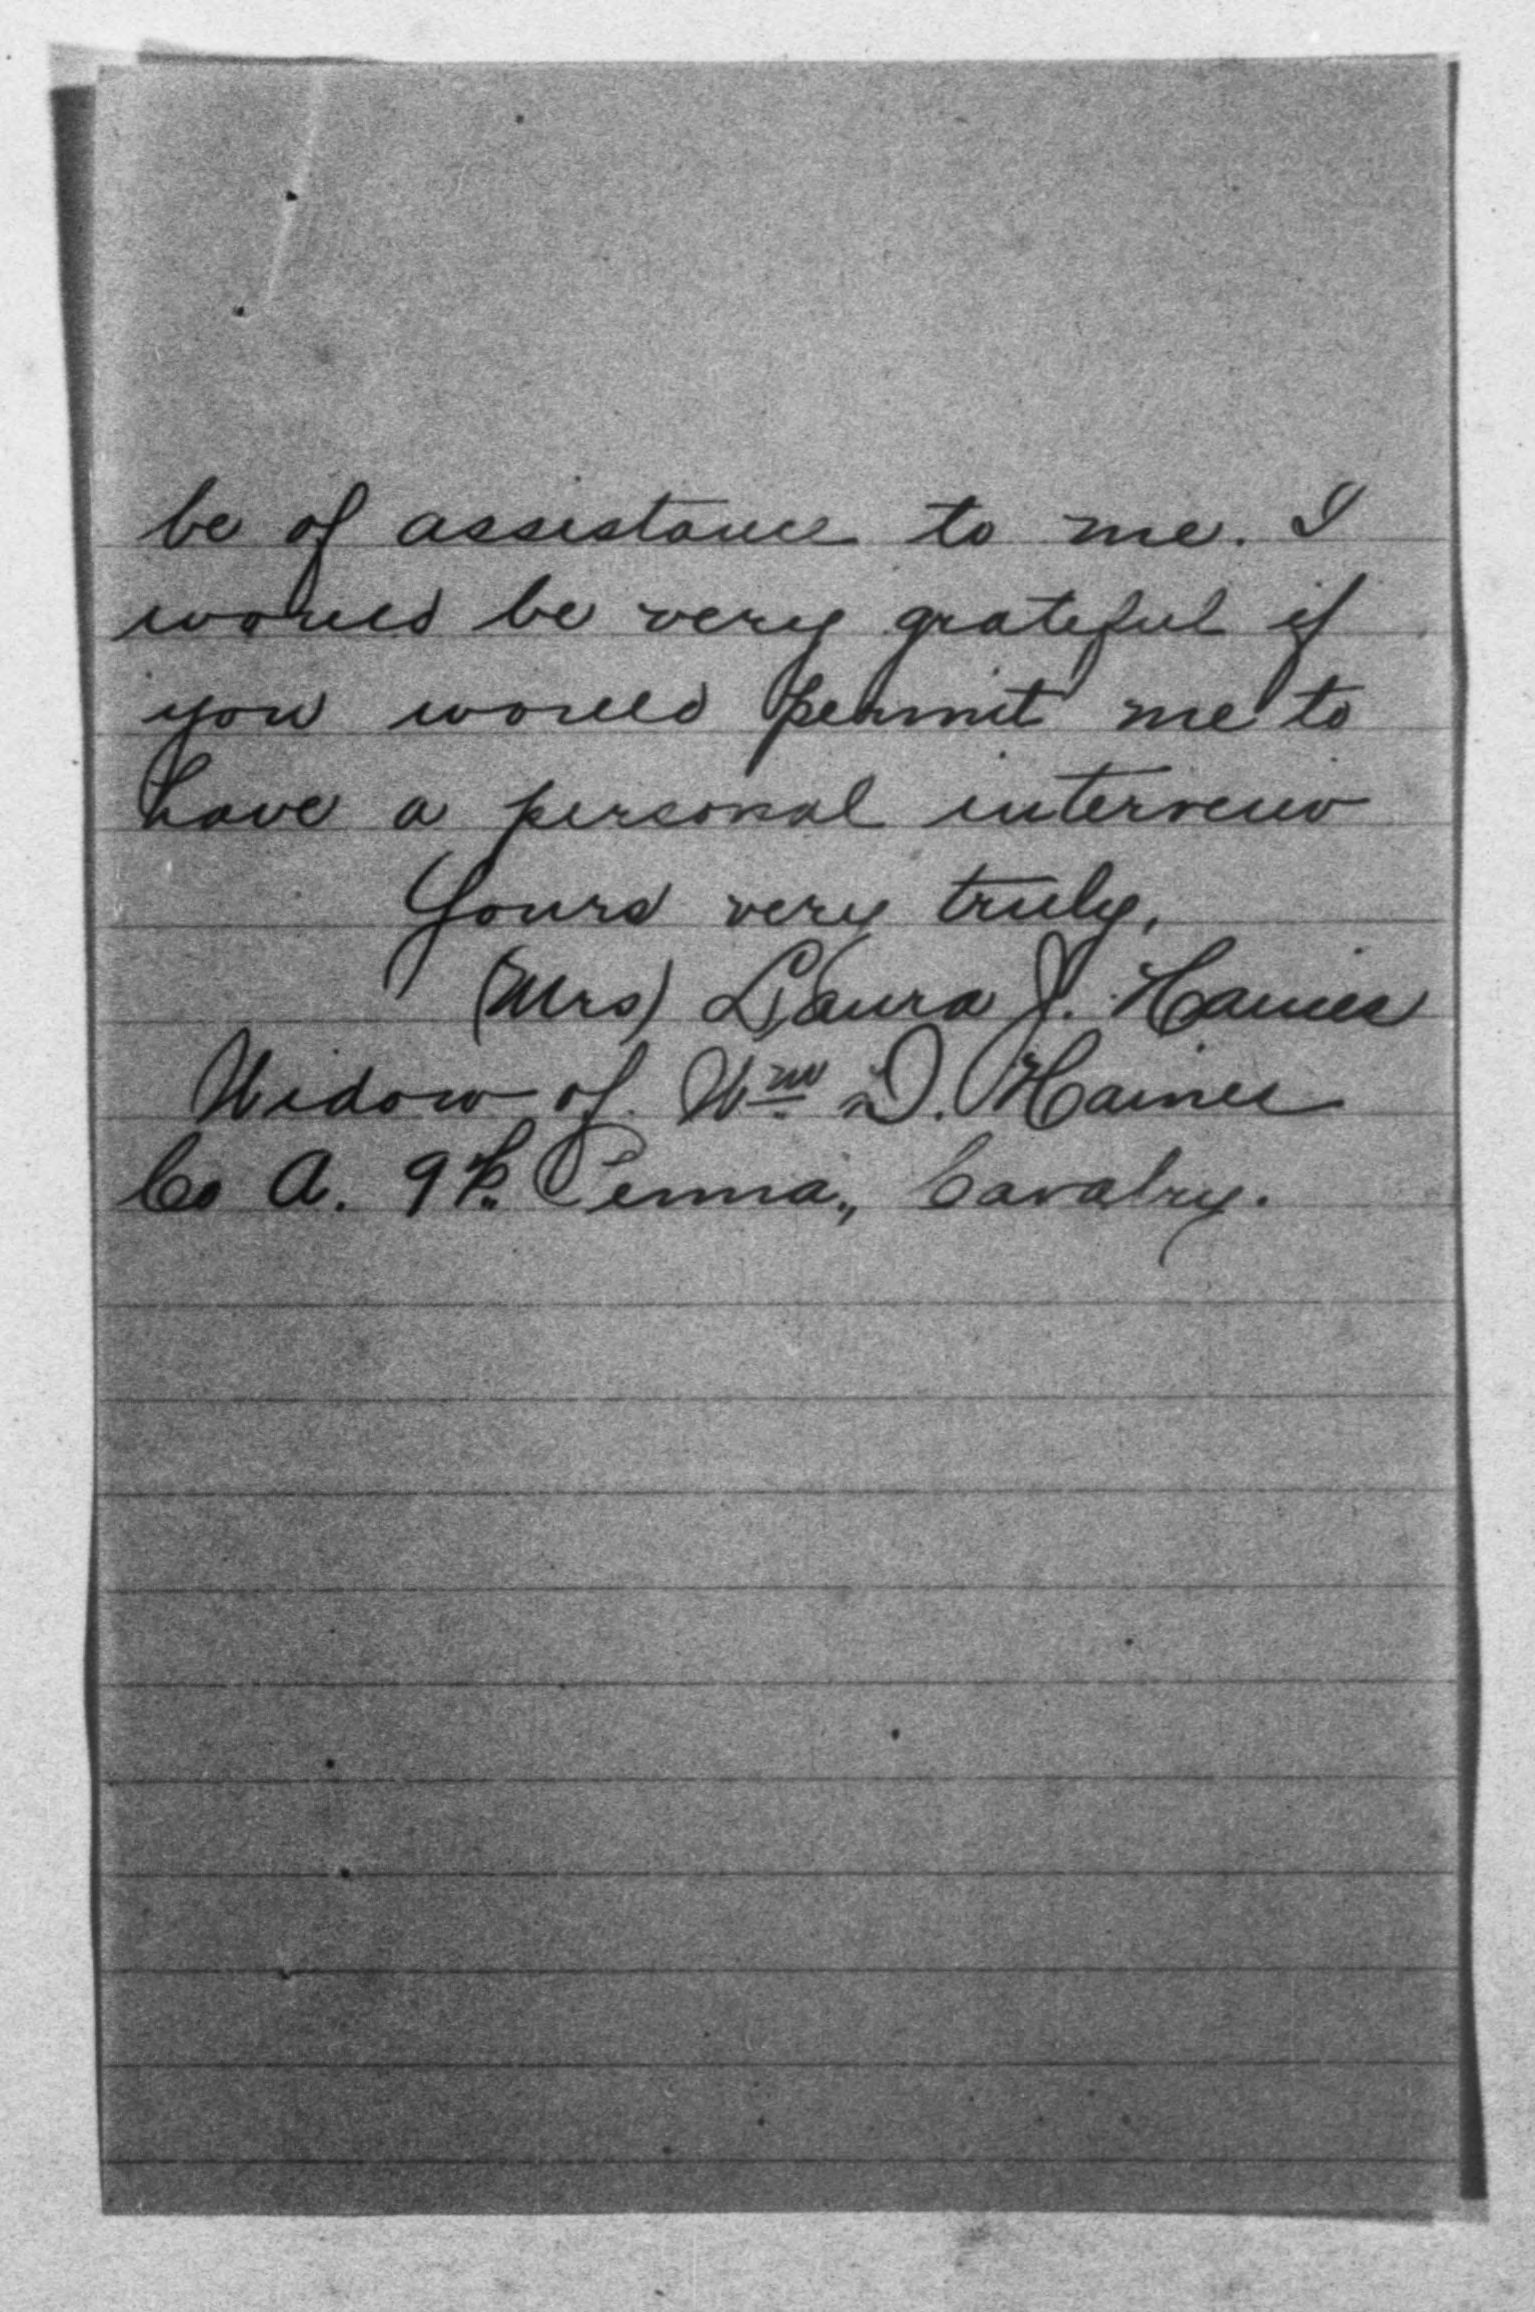 be of assistance to me. I
would be very grateful if
you would permit me to
have a personal interview
Yours very truly,
(Mrs) Laura J. Haines
Widow of Wm D. Haines
Co A. 9th Penna., Cavalry.